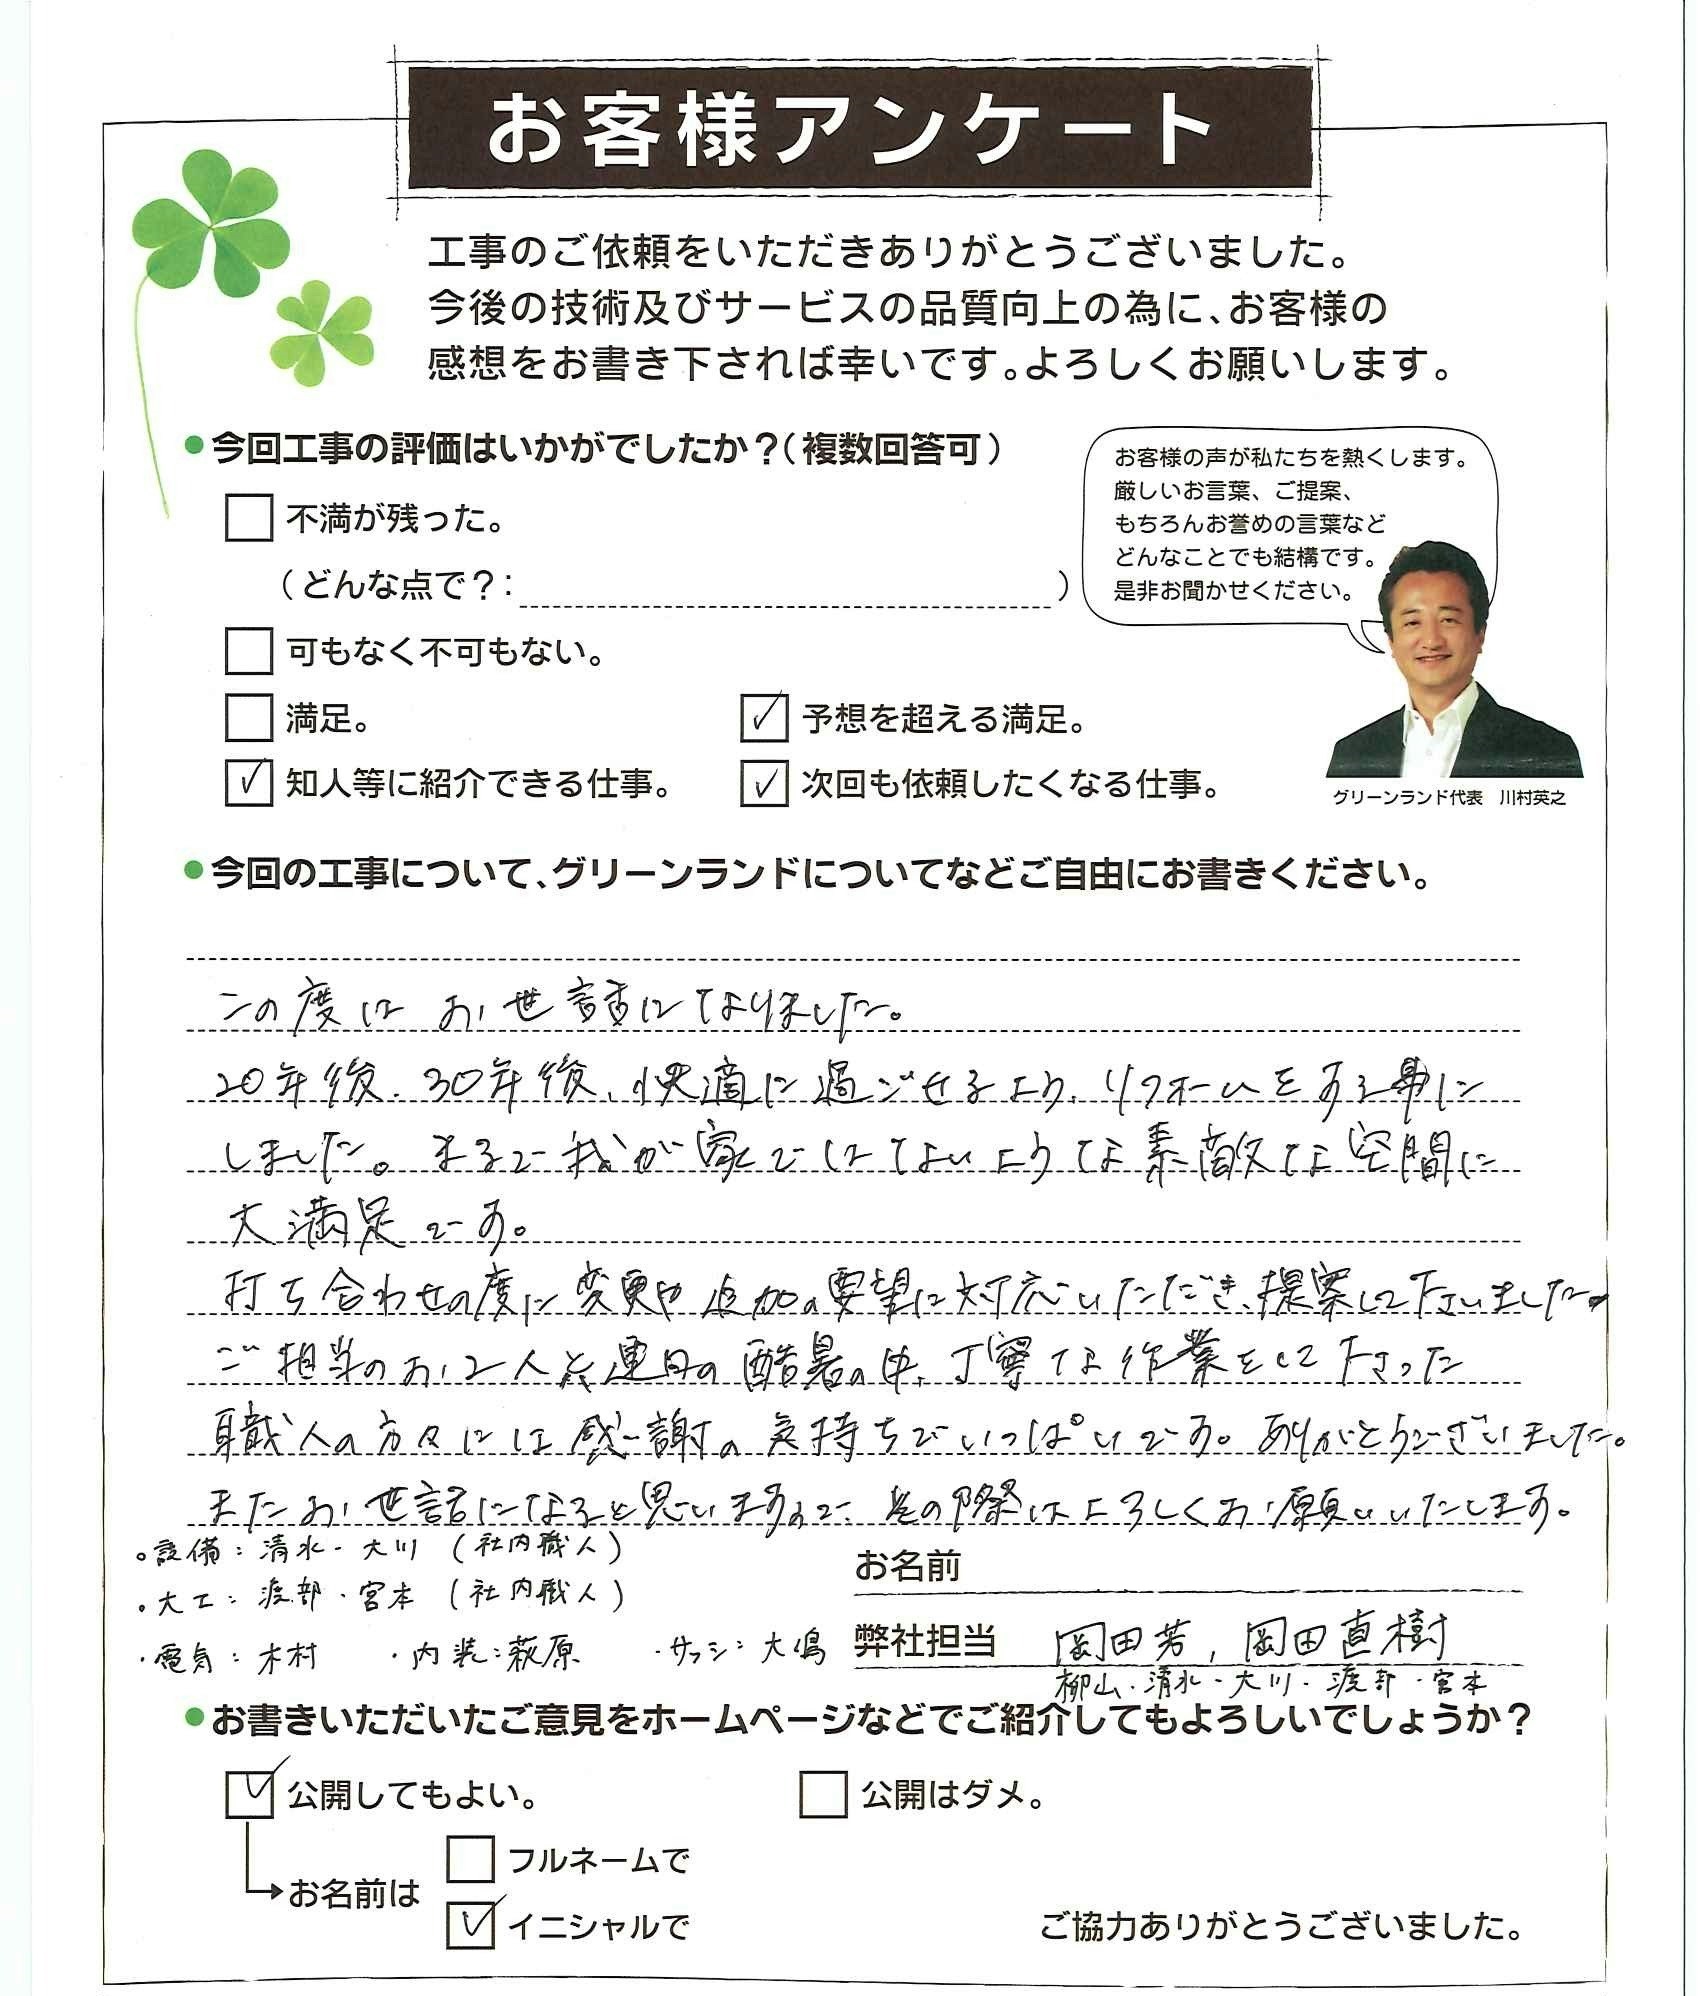 お客様アンケート
工事のご依頼をいただきありがとうございました。
今後の技術及びサービスの品質向上の為に、お客様の
感想をお書き下されば幸いです。よろしくお願いします。
●今回工事の評価はいかがでしたか?(複数回答可)
不満が残った。
(どんな点で?: )
可もなく不可もない。
満足。
予想を超える満足。
知人等に紹介できる仕事。
次回も依頼したくなる仕事。
お客様の声が私たちを熱くします。
厳しいお言葉、ご提案、
もちろんお誉めの言葉など
どんなことでも結構です。
是非お聞かせください。
グリーンランド代表 川村英之
●今回の工事について、グリーンランドについてなどご自由にお書きください。
この度は お世話になりました。
20年後、30年後、快適に過ごせるよう、リフォームをする事に
しました。まるで我が家ではないような素敵な空間に
大満足です。
打ち合わせの度に変更や追加の要望に対応いただき、提案して下さいました
ご担当のお2人と連日の酷暑の中、丁寧な作業をして下さった
職人の方々には感謝の気持ちでいっぱいです。ありがとうございました。
またお世話になると思いますので、その際はよろしくお願いいたします。
。設備:清水・大川(社内職人)
・大工:渡部・宮本(社内職人)
・電気:木村 ・内装:萩原 ・サッシ:大嶋
お名前
弊社担当 岡田芳, 岡田直樹
柳山・清水・大川・渡部・宮本
●お書きいただいたご意見をホームページなどでご紹介してもよろしいでしょうか?
公開してもよい。
公開はダメ。
お名前は
フルネームで
イニシャルで
ご協力ありがとうございました。